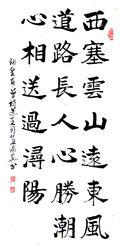 西塞雲山遠東風
道路長人心勝潮
水相送過潯陽